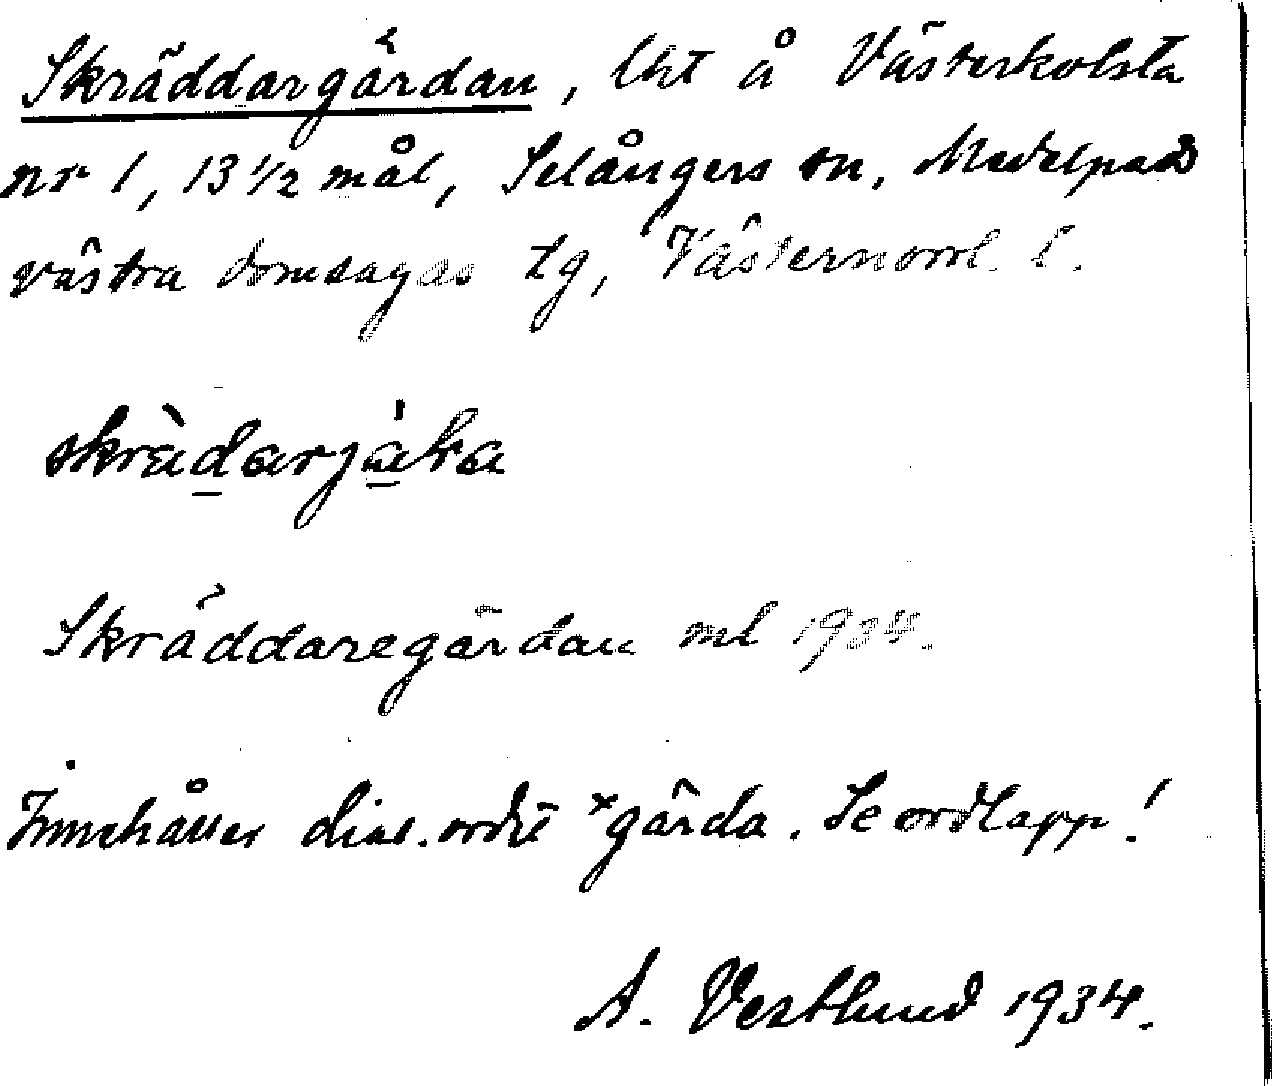 Skräddargärdan, lht å Västerkolsta
nr 1, 13 1/2 mål, Selångers sn, Medelpads
västra domsagas tg, Västernorrl. l.
Skräddaregärdan ml 1934.
Innehåller dial. ordet *gärda. Se ordlapp!
A. Vestlund 1934.